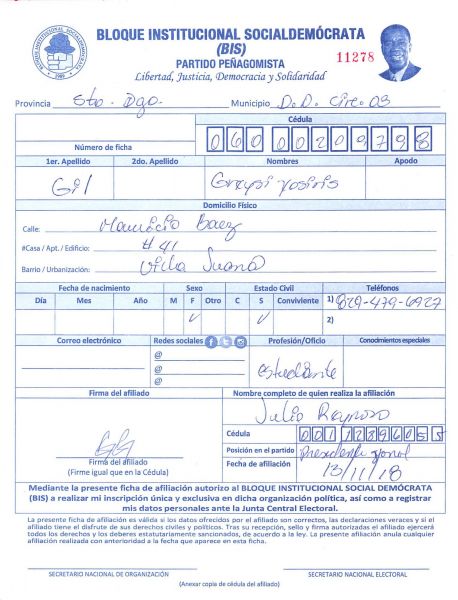 BLOQUE INSTITUCIONAL SOCIALDEMÓCRATA
(BIS)
PARTIDO PEÑAGOMISTA
Libertad, Justicia, Democracia y Solidaridad
11278
Provincia Sto. Dgo. Municipio D.D. Circ. 03
Número de ficha
Cédula
1er. Apellido 2do. Apellido Nombres Apodo
Gil
Domicilio Físico
Calle: Mauricio Baez
#Casa / Apt. / Edificio: # 41
Barrio / Urbanización: Villa Juana
Fecha de nacimiento Sexo Estado Civil Teléfonos
Día Mes Año M F Otro C S Conviviente 1) 829-479-6927
2)
Correo electrónico Redes sociales Profesión/Oficio Conocimientos especiales
@
@
@
estudiante
Firma del afiliado Nombre completo de quien realiza la afiliación
Julio
Cédula
Posición en el partido Presidente zonal
Fecha de afiliación 13/11/18
Firma del afiliado
(Firme igual que en la Cédula)
Mediante la presente ficha de afiliación autorizo al BLOQUE INSTITUCIONAL SOCIAL DEMÓCRATA
(BIS) a realizar mi inscripción única y exclusiva en dicha organización política, así como a registrar
mis datos personales ante la Junta Central Electoral.
La presente ficha de afiliación es válida si los datos ofrecidos por el afiliado son correctos, las declaraciones veraces y si el
afiliado tiene el disfrute de sus derechos civiles y políticos. Tras su recepción, sello y firma autorizados el afiliado ejercerá
todos los derechos y los deberes estatutariamente sancionados, de acuerdo a la ley. La presente afiliación anula cualquier
afiliación realizada con anterioridad a la fecha que aparece en esta ficha.
SECRETARIO NACIONAL DE ORGANIZACIÓN SECRETARIO NACIONAL ELECTORAL
(Anexar copia de cédula del afiliado)